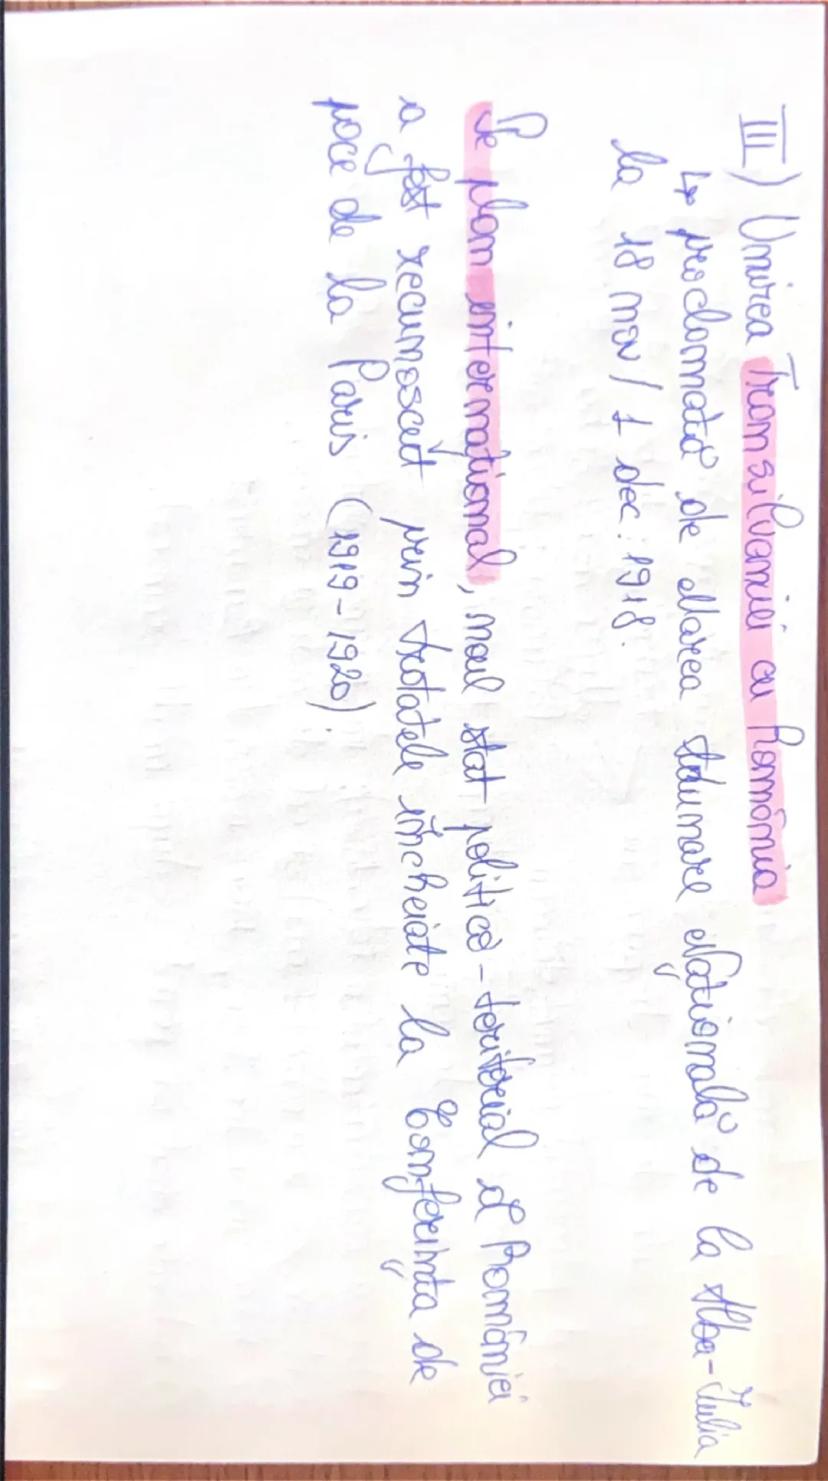 III) Unirea Transilvaniei cu România
↳ proclamată de Marea Adunare Națională de la Alba-Iulia
la 18 nov / 1 dec. 1918.
Pe plan internațional, noul stat politico-teritorial al României
a fost recunoscut prin tratatele încheiate la Conferința de
pace de la Paris (1919-1920).